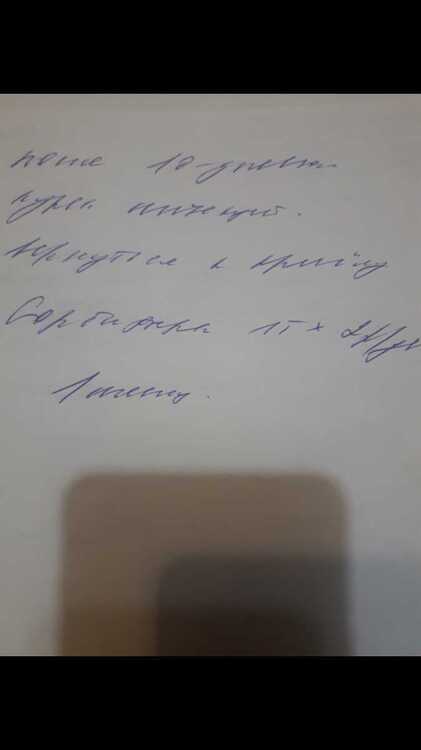 после 10-дневн
курса инъекций.
вернуться к приёму
Сорбифера 1т х 2р/дн
1 месяц.